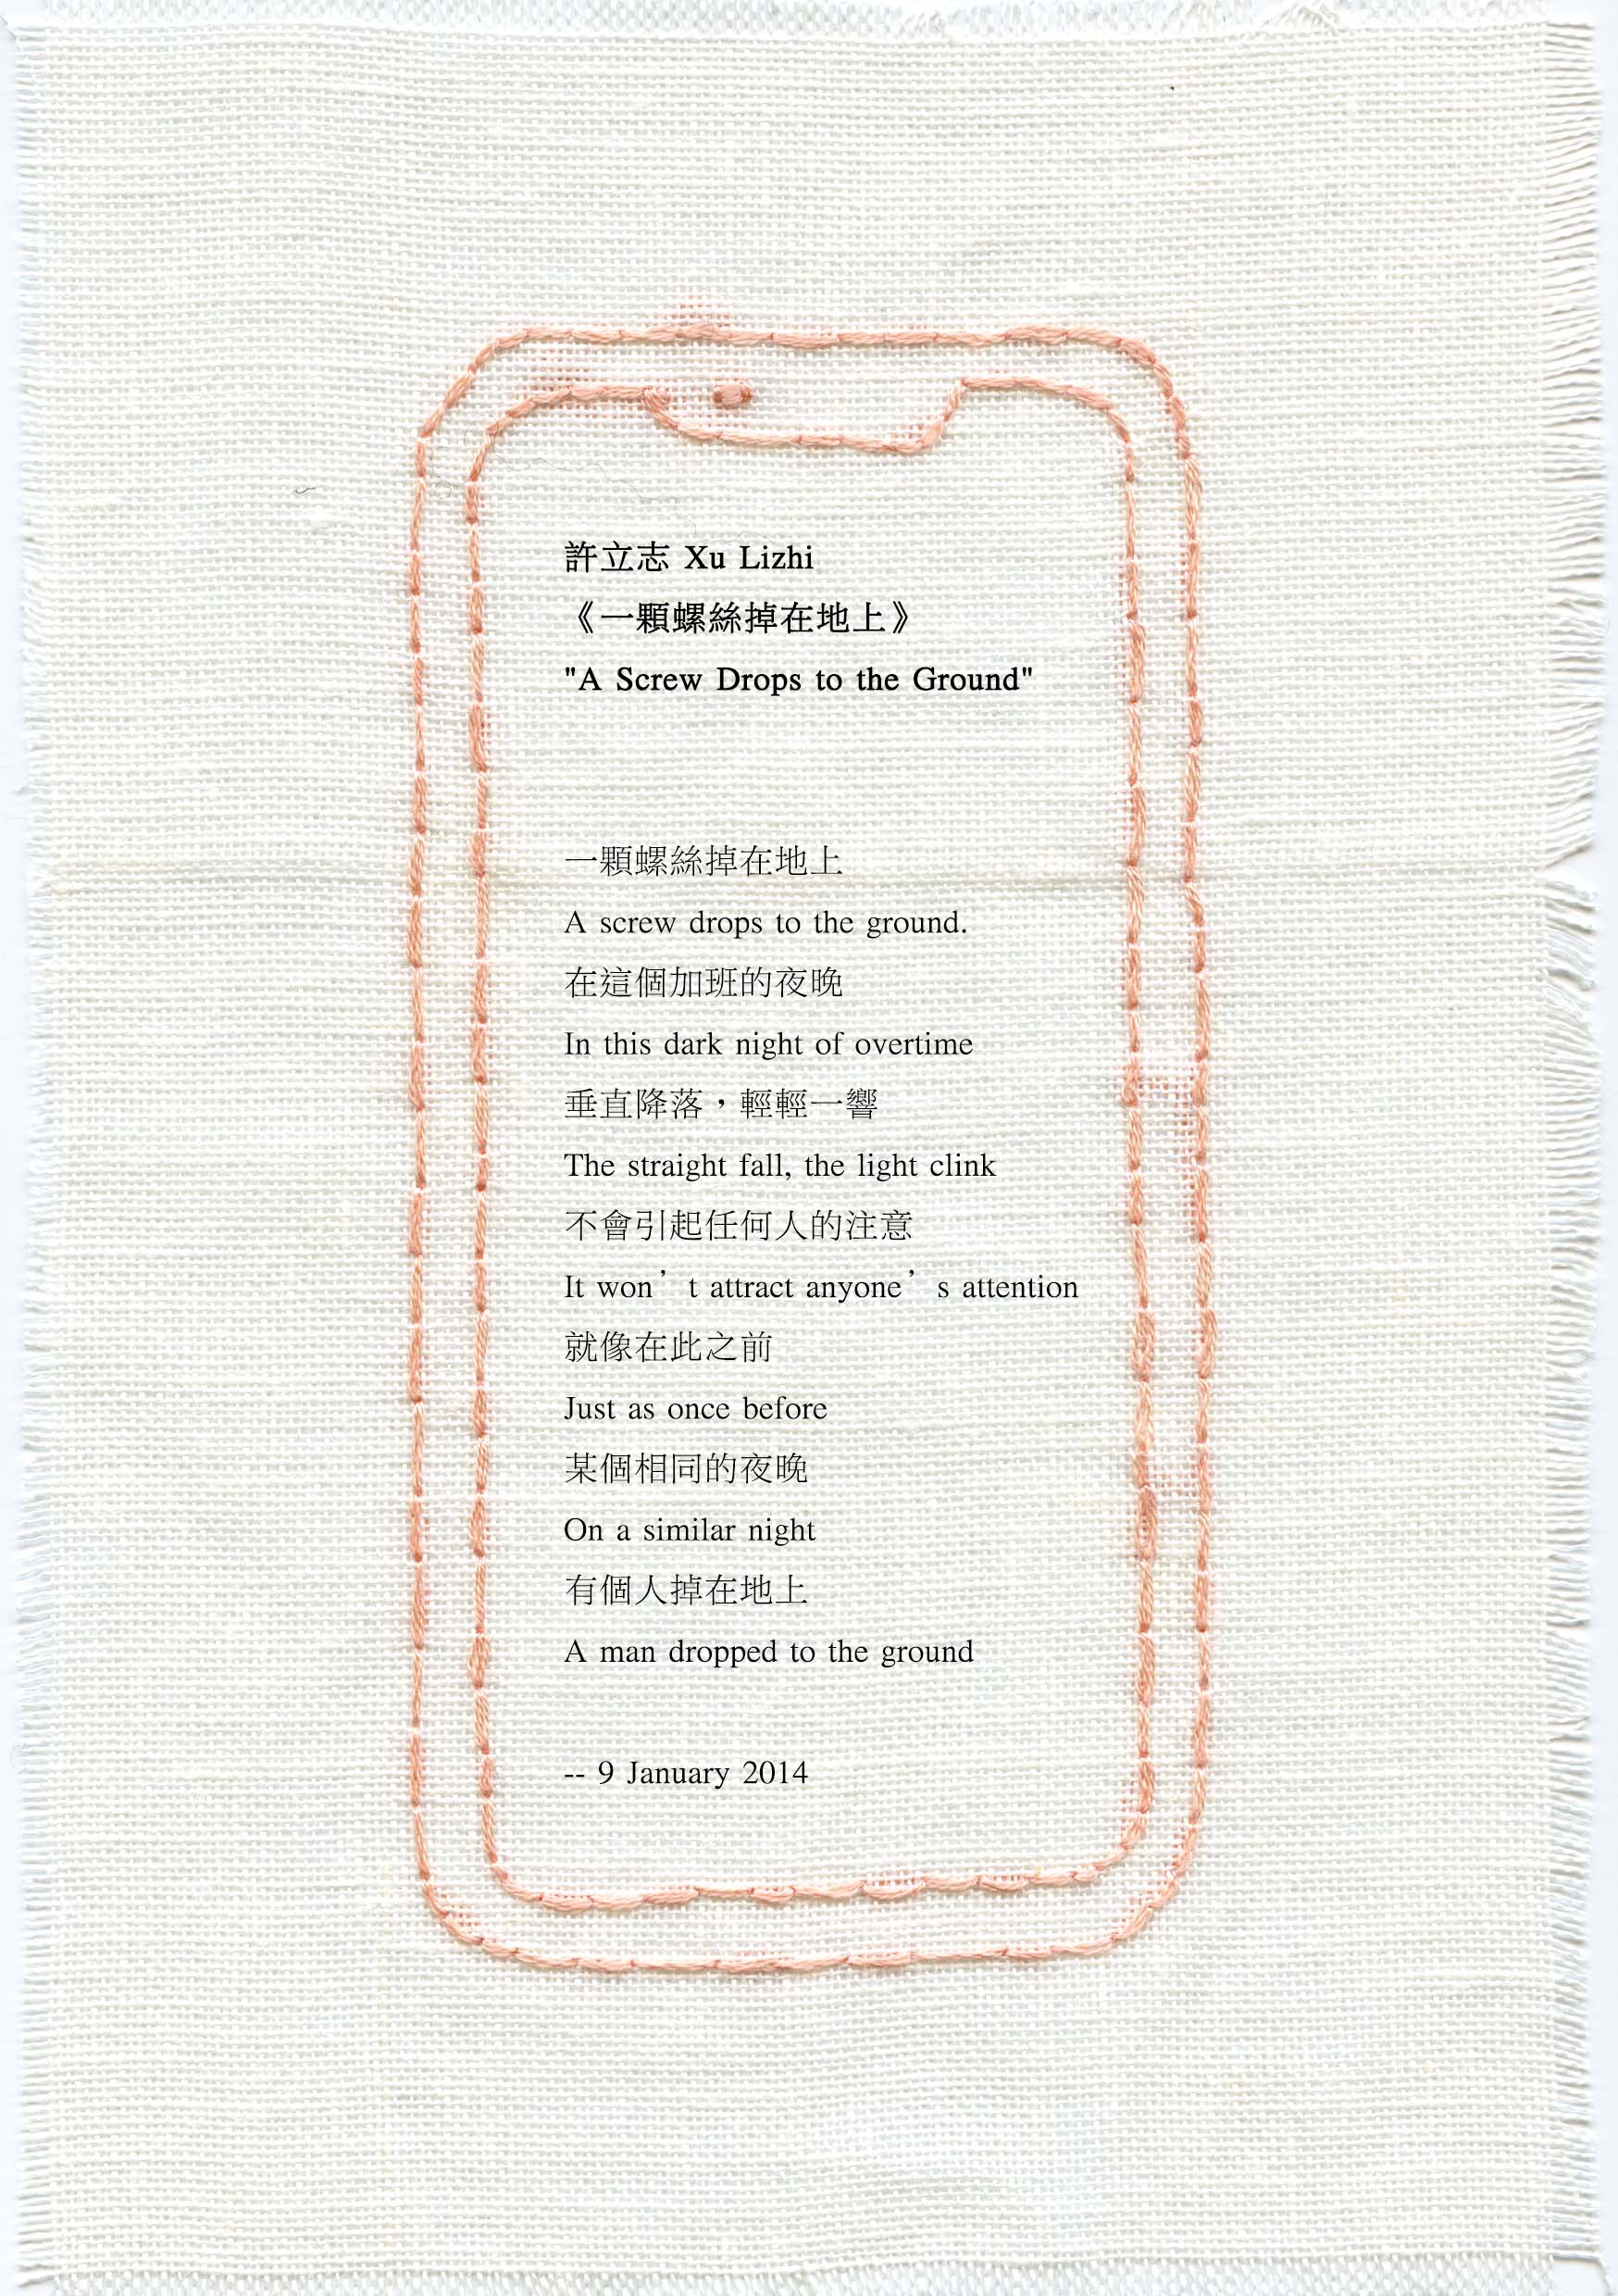 許立志 Xu Lizhi
《一顆螺絲掉在地上》
"A Screw Drops to the Ground"
一顆螺絲掉在地上
A screw drops to the ground.
在這個加班的夜晚
In this dark night of overtime
垂直降落，輕輕一響
The straight fall, the light clink
不會引起任何人的注意
It won’t attract anyone’s attention
就像在此之前
Just as once before
某個相同的夜晚
On a similar night
有個人掉在地上
A man dropped to the ground
-- 9 January 2014